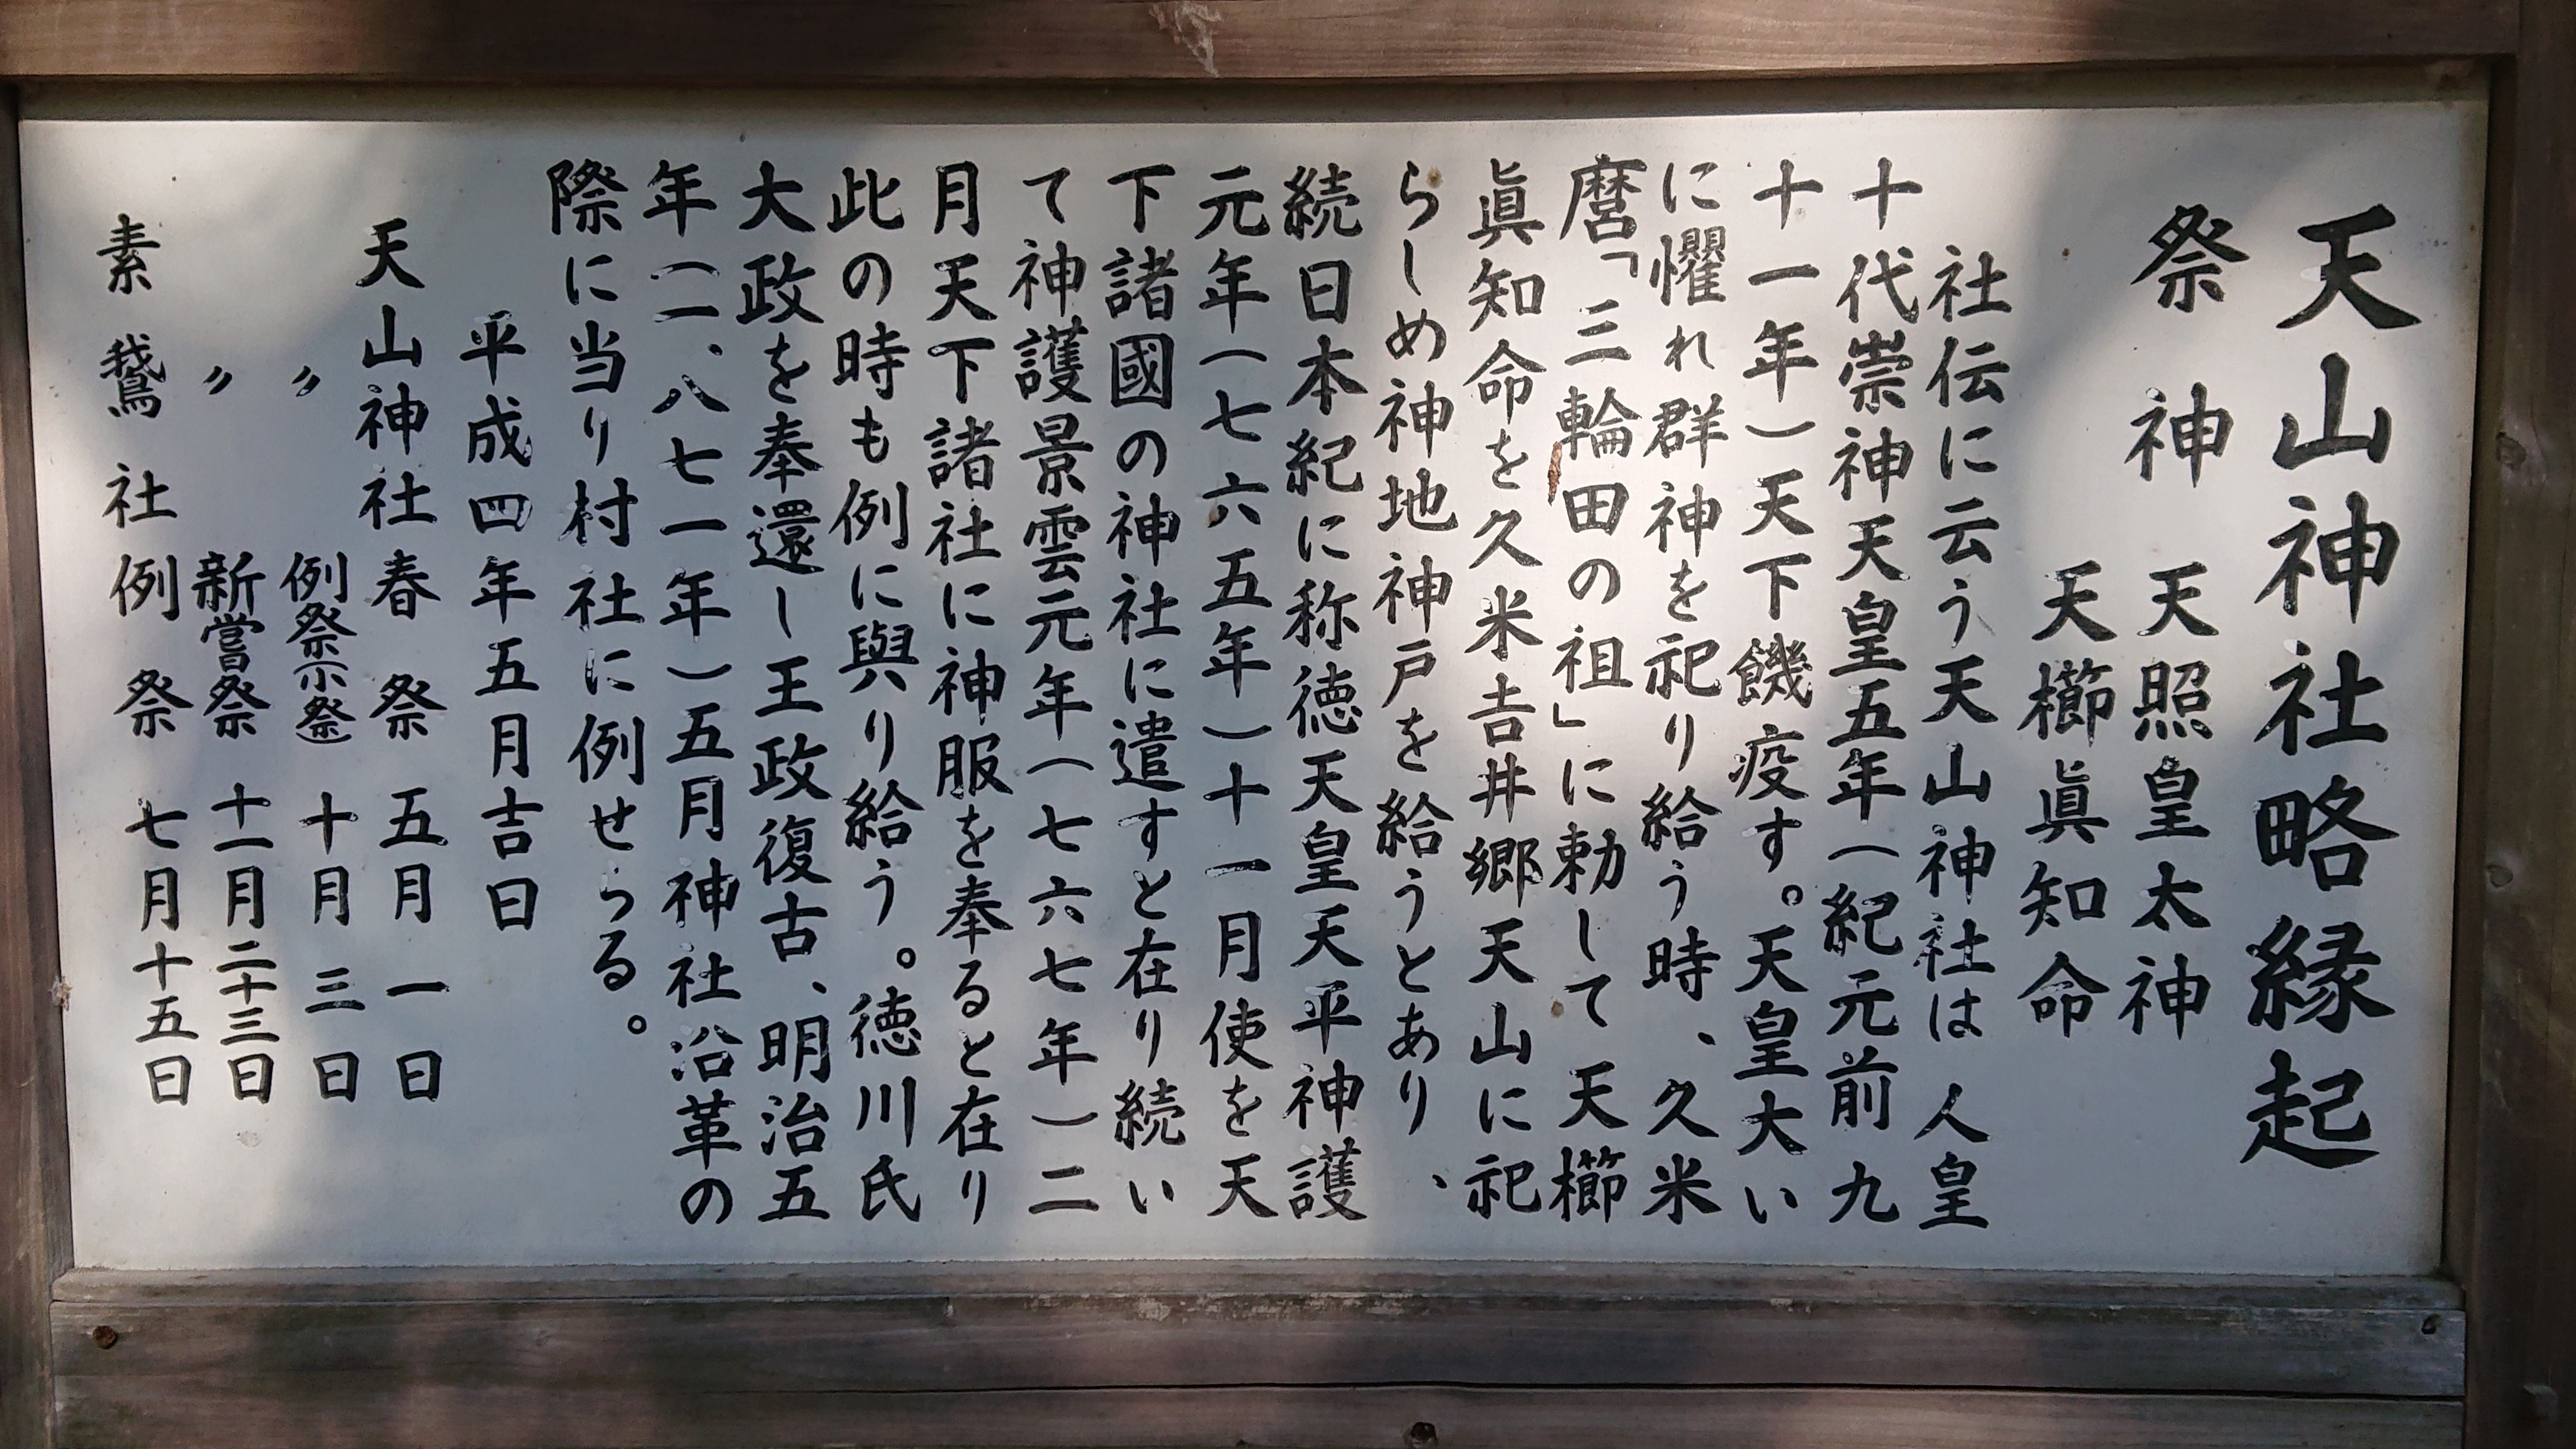 天山神社略縁起
祭神 天照皇太神
天櫛眞知命
社伝に云う天山神社は人皇
十代崇神天皇五年(紀元前九
十一年)天下饑疫す。天皇大い
に懼れ群神を祀り給う時、久米
麿「三輪田の祖」に勅して天櫛
眞知命を久米吉井郷天山に祀
らしめ神地神戸を給うとあり、
続日本紀に称徳天皇天平神護
元年(七六五年)十一月使を天
下諸國の神社に遣すと在り続い
て神護景雲元年(七六七年)二
月天下諸社に神服を奉ると在り
此の時も例に與り給う。徳川氏
大政を奉還し王政復古、明治五
年(一、八七一年)五月神社沿革の
際に当り村社に例せらる。
平成四年五月吉日
天山神社 春祭 五月一日
〃 例祭(示祭) 十月三日
〃 新嘗祭 十一月二十三日
素鵞社 例祭 七月十五日